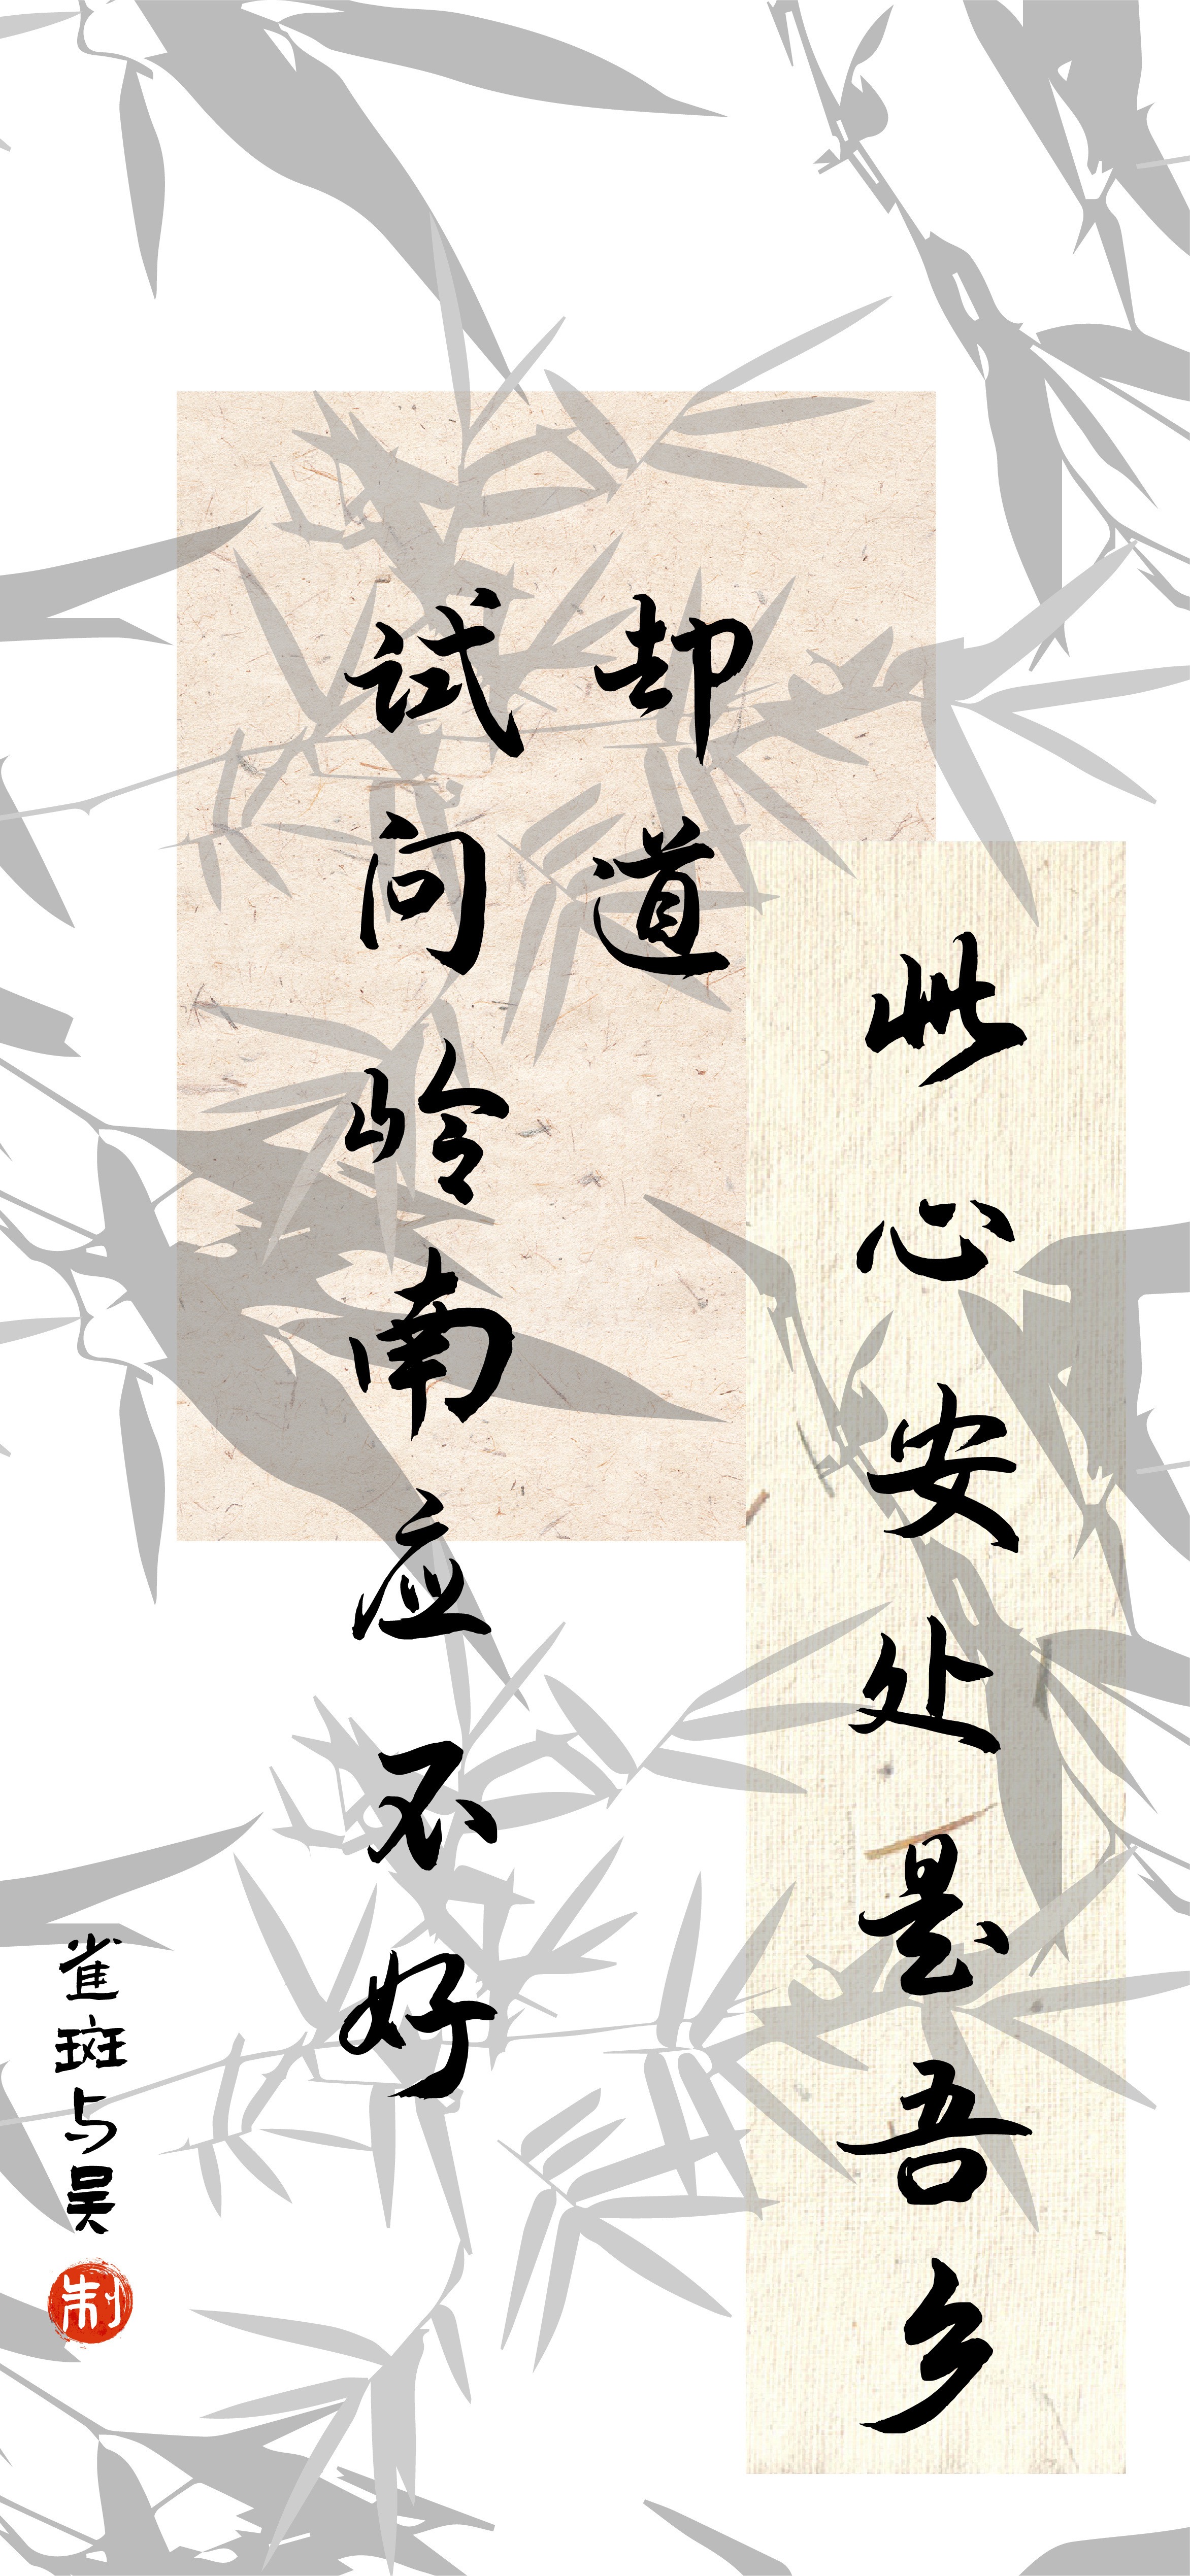 试问岭南应不好
却道
此心安处是吾乡
雀斑与吴
制